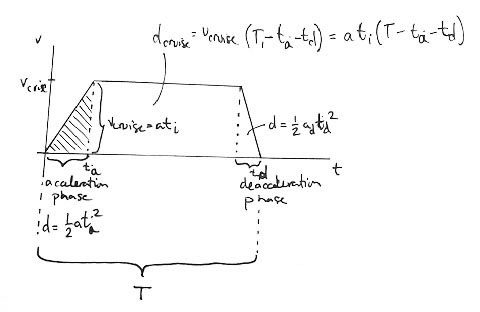 d_cruise = v_cruise (T₁ - t_a - t_d) = a t_i (T - t_a - t_d)
v
v_crise
v_cruise = at_i
d = ½ a_d t_d²
t_a
t_d
t
acaleration phase
deacceleration phase
d = ½ a t_a²
T